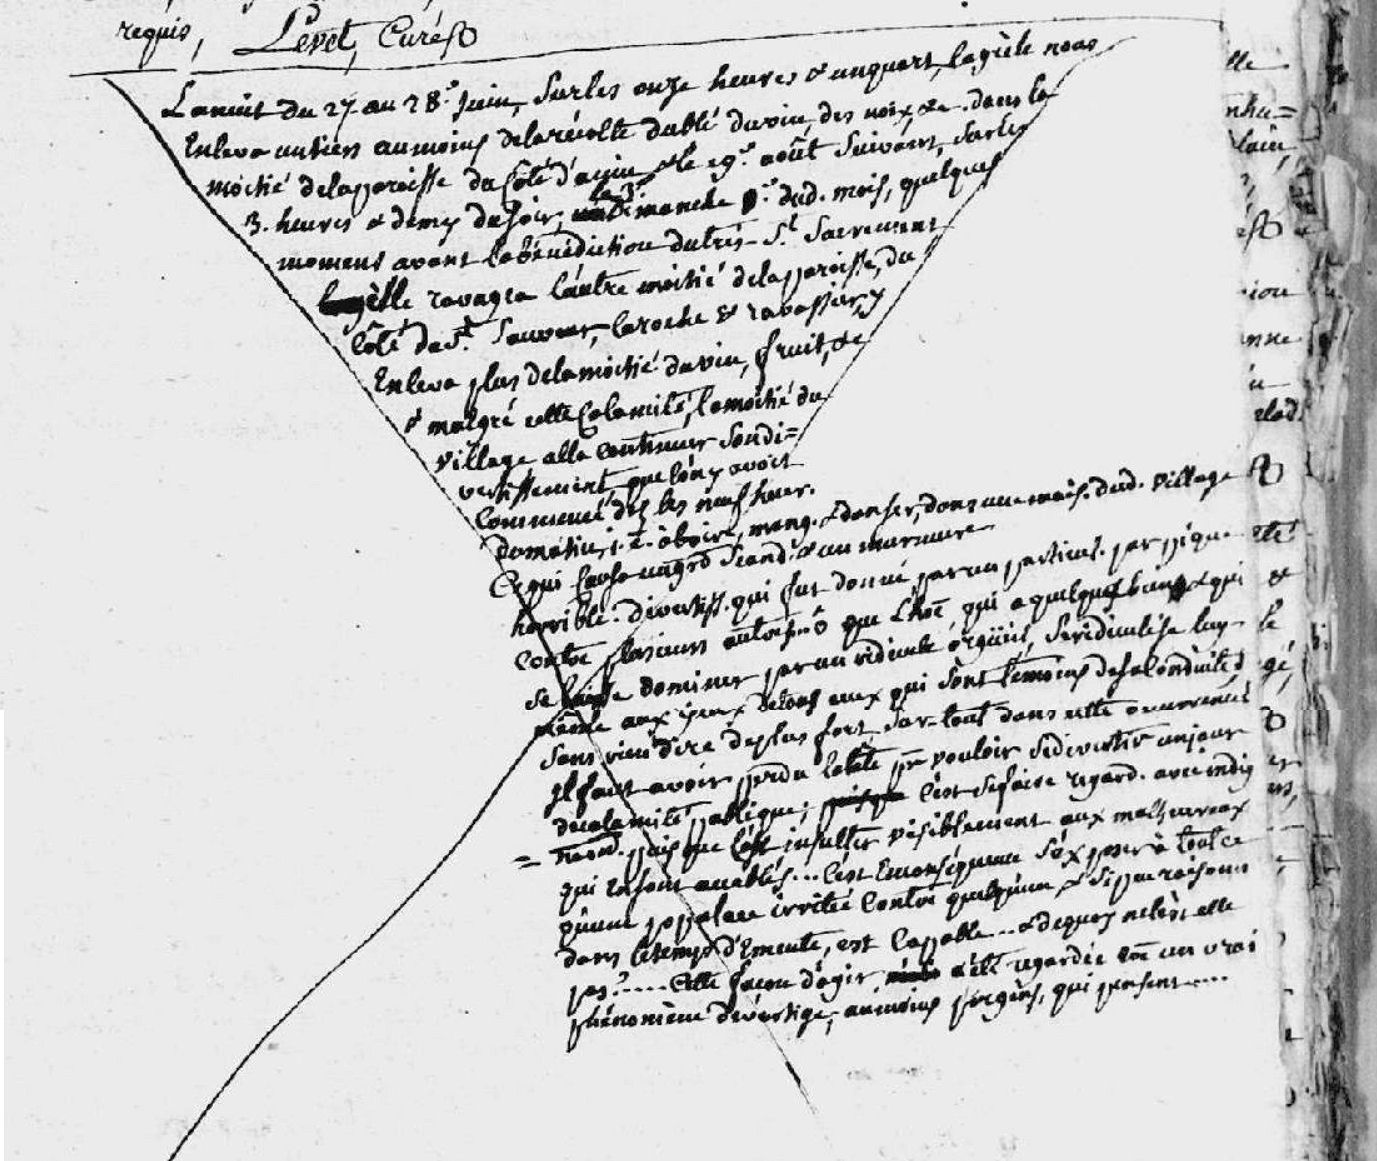 requis, Levet, Curé
La nuit du 27. au 28.e Juin, Sur les onze heures & un quart, la grèle nous
Enleva un tiers au moins de la récolte du blé du vin, des noix, &c. dans la
moitié de la paroisse du Côté d'ayin, & le 29.e août Suivant, Sur les
3. heures & demy du soir, dimanche d.e dud. mois, quelques
momens avant la bénédiction du très-S.t Sacrement
laqèlle ravagea l'autre moitié de la paroisse, du
Côté de S.t Sauveur, la roche & ravassieux, y
Enleva plus de la moitié du vin, fruit, &c
& malgré cette Calamité, la moitié du
village alla continuer Son di=
vertissement que l'on y avoit
Commencé dès les neuf heur.
du matin, i. è. à boire, mang. & danser, dans une mais. dud. village
Ce qui Causa un grd Scand. & un murmure
horrible. Divertiss. qui fut donné par un particul. par pique
Contre plusieurs autres que l'hoe, qui a quelques biens & qui
se laisse dominer par un ridicule orgüeil, Se ridiculise luy
même aux yeux de tous ceux qui Sont témoins de Sa Conduite
Sans rien dire de plus fort, Sur-tout dans cette occurrence
Il faut avoir perdu la tête pr vouloir Se divertir un jour
de calamité publique; C'est Se faire regard. avec indig
= nation. puisque C'est insulter visiblement aux malheureux
qui En sont accablés... C'est En conséquence S'éxposer à tout ce
qu'une populace irritée Contre quelqu'un & Si peu raisonn
dans le temps d'Emeute, est Capable... & de quoy ne l'est elle
pas?..... Cette façon d'agir a été regardée coe un vrai
phénomène de vertige, au moins par gens, qui pensent.....